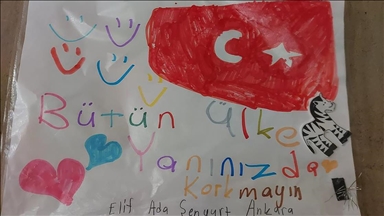 Bütün ülke
Yanınızda
Korkmayın
Elif Ada Şenyurt Ankara